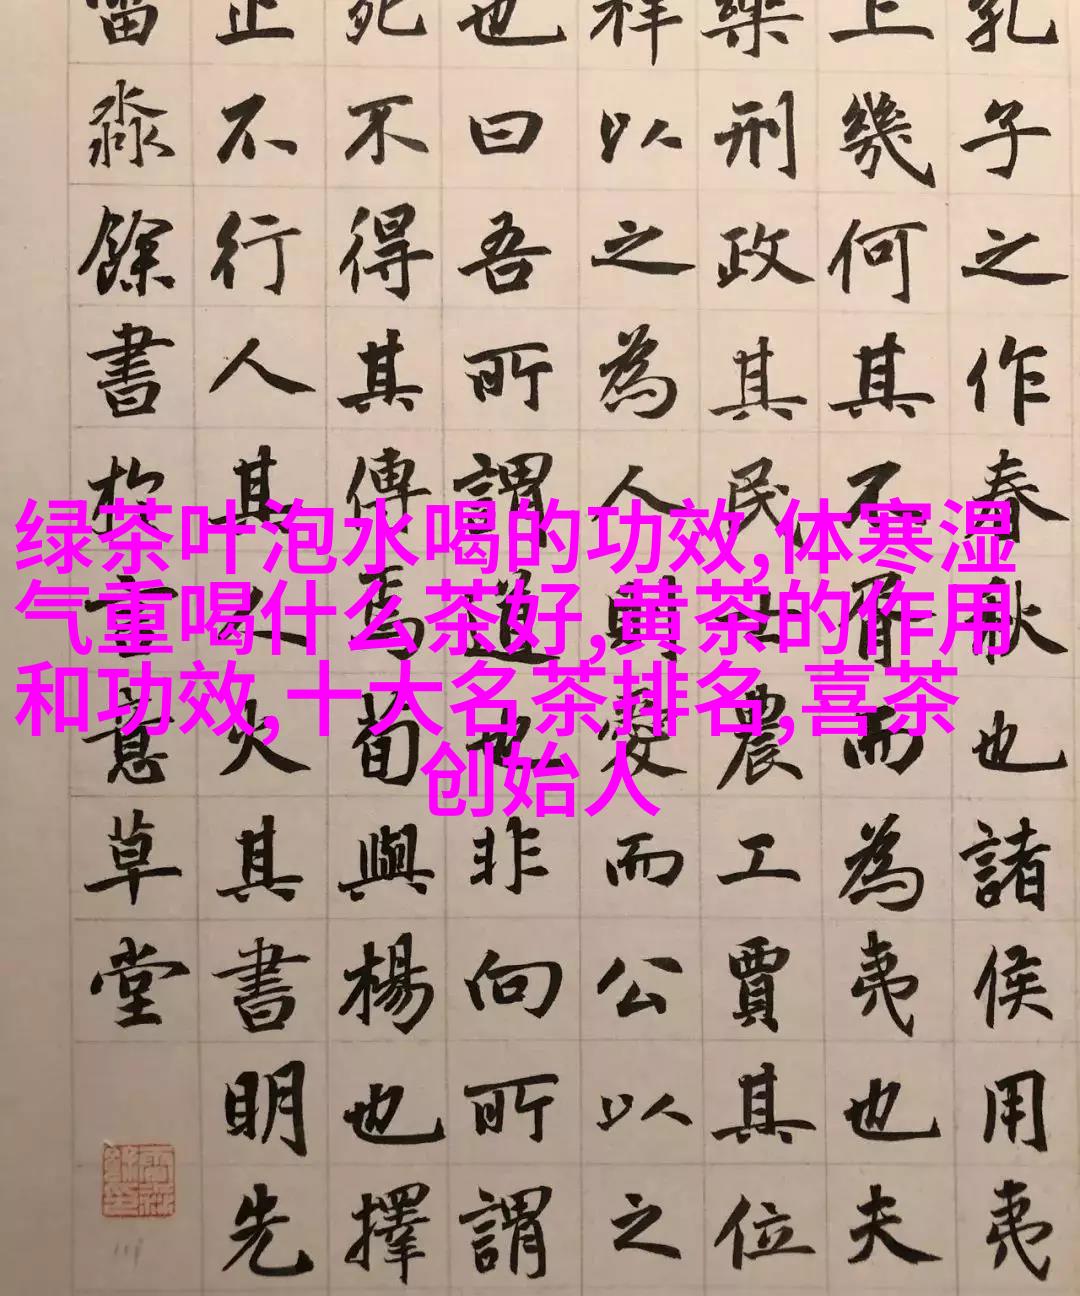 孔子之作春秋也諸侯用夷
上幾何其不胥而為夷也夫
樂刑政其民士農工賈其位
祥以之為人則愛而公以之
也曰吾所謂道也非向所謂
死不得其傳焉荀與楊也擇
止不行人其人火其書明先
淼餘書於意草堂
绿茶叶泡水喝的功效,体寒湿
气重喝什么茶好,黄茶的作用
和功效,十大名茶排名,喜茶
创始人